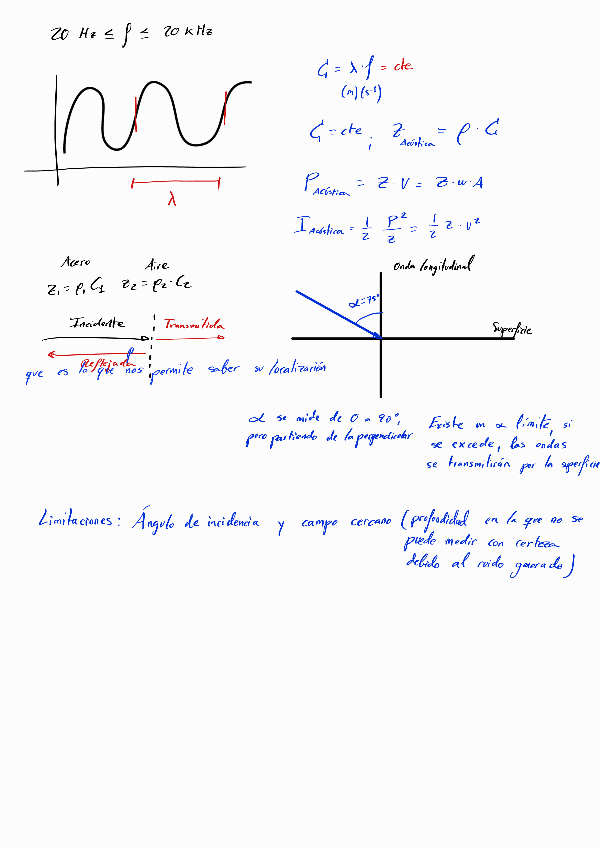 20 Hz ≤ f ≤ 20 kHz
C = λ · f = cte
(m) (s⁻¹)
C = cte ; Z Acústica = ρ · C
λ
P Acústica = Z · V = Z · w · A
I Acústica = 1/2 P²/Z = 1/2 Z · V²
Acero Aire
Z₁ = ρ₁ C₁ Z₂ = ρ₂ · C₂
Onda longitudinal
α = 75°
Superficie
Incidente Transmitida
Reflejada
que es lo que nos permite saber su localización
α se mide de 0 a 90°,
pero partiendo de la perpendicular
Existe un α límite, si
se excede, las ondas
se transmitirán por la superficie
Limitaciones: Ángulo de incidencia y campo cercano (profundidad en la que no se
puede medir con certeza
debido al ruido generado)